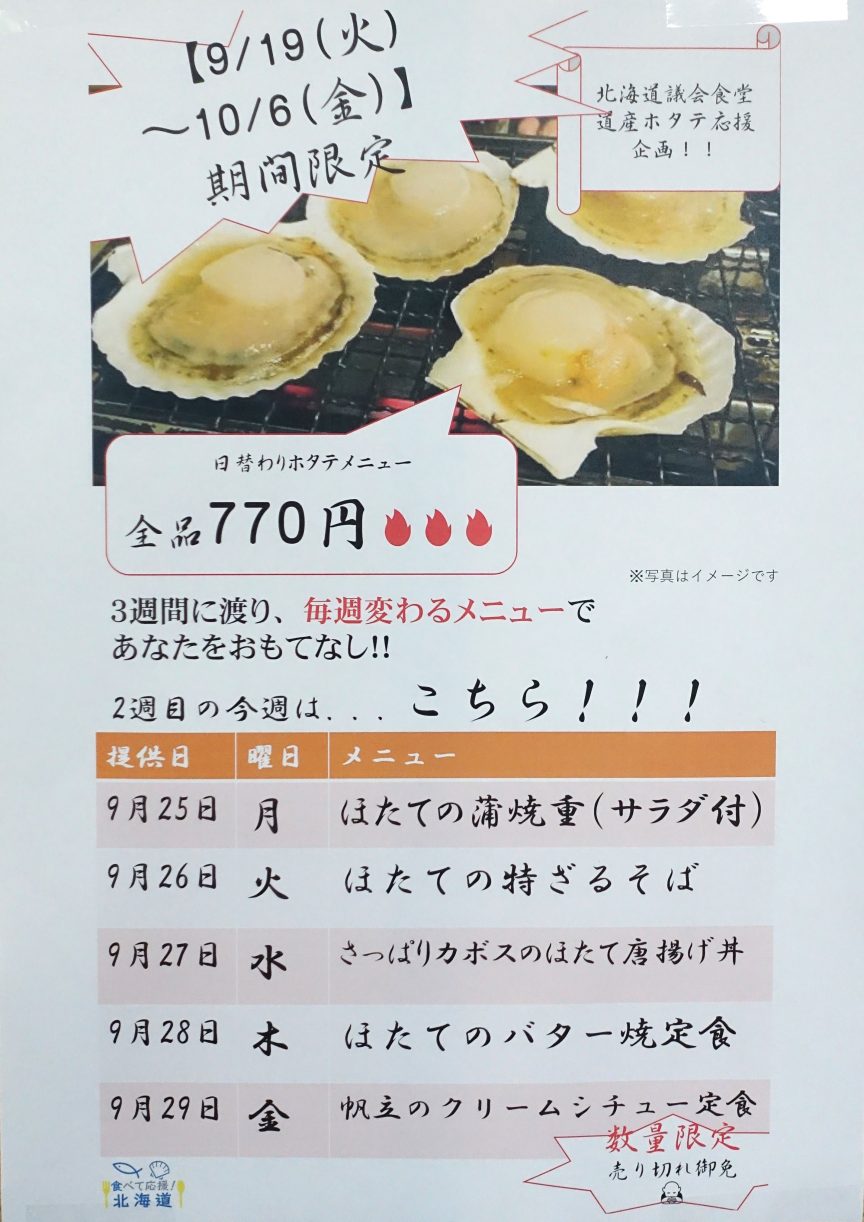 【9/19(火)
～10/6(金)】
期間限定
北海道議会食堂
道産ホタテ応援
企画！！
日替わりホタテメニュー
全品770円
※写真はイメージです
3週間に渡り、毎週変わるメニューで
あなたをおもてなし!!
2週目の今週は... こちら！！！
提供日 曜日 メニュー
9月25日 月 ほたての蒲焼重(サラダ付)
9月26日 火 ほたての特ざるそば
9月27日 水 さっぱりカボスのほたて唐揚げ丼
9月28日 木 ほたてのバター焼定食
9月29日 金 帆立のクリームシチュー定食
数量限定
売り切れ御免
食べて応援!
北海道